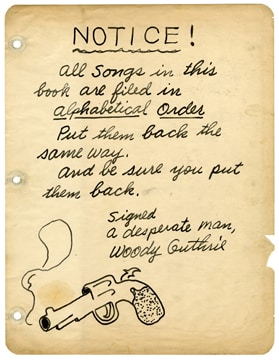 NOTICE!
All Songs in this
book are filed in
alphabetical Order
Put them back the
same way.
And be sure you put
them back.
Signed
a desperate man,
Woody Guthrie